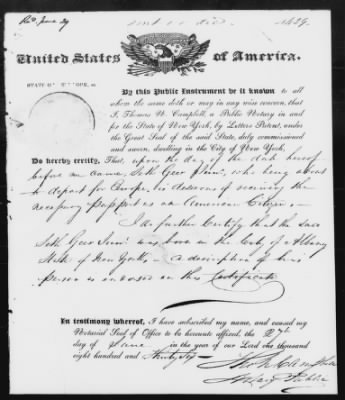 Rec'd June 29
sent
United States of America.
STATE OF NEW YORK, ss
By this Public Instrument be it known to all
whom the same doth or may in any wise concern, that
I, Thomas W. Campbell, a Public Notary in and
for the State of New York, by Letters Patent, under
the Great Seal of the said State, duly commissioned
and sworn, dwelling in the City of New York,
Do hereby certify, That, upon the day of the date hereof
before me came Seth Geer Junr, who being about
to depart for Europe, is desirous of receiving the
necessary passport as an American Citizen—
I do further Certify that the said
Seth Geer Junr was born in the City of Albany
State of New York — a description of his
person is on this Certificate
In testimony whereof, I have subscribed my name, and caused my
Notarial Seal of Office to be hereunto affixed, the 27th
day of June in the year of our Lord one thousand
eight hundred and thirty six—
Thos W Campbell
Notary Public